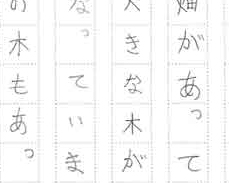 畑があって
大きな木が
なっていま
木もあっ